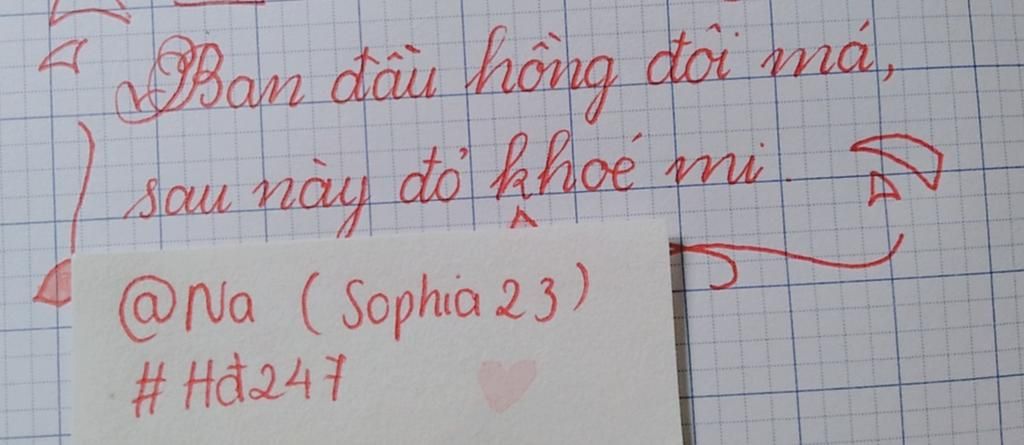 Ban đầu hồng đôi má,
sau này đỏ khoé mi.
@Na (Sophia 23)
#Hđ247